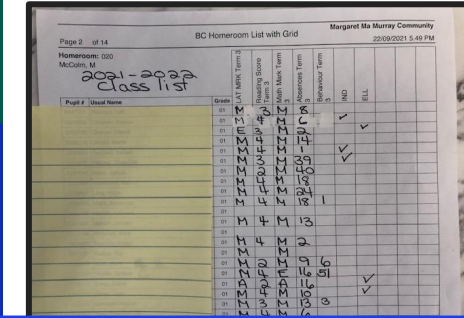 Margaret Ma Murray Community
Page 2 of 14
BC Homeroom List with Grid
22/09/2021 5:49 PM
Homeroom: 020
McColm, M
2021-2022
Class list
Pupil # Usual Name Grade LAT MRK Term 3 Reading Score Term 3 Math Mark Term 3 Absences Term 3 Behaviour Term 3 IND ELL
01 M 3 M 8
01 M 4 M 6 ✓
01 E 3 M 2 ✓
01 M 4 M 14
01 M 4 M 1 ✓
01 M 3 M 39 ✓
01 M 2 M 40
01 M 4 M 18
01 M 4 M 24
01 M 4 M 18 1
01
01 M 4 M 13
01
01 M 4 M 2
01 M M
01 M 2 M 9 6
01 M 4 E 16 51
01 A 2 A 16 ✓
01 M 4 M 10 ✓
01 M 3 M 13 3
01 M 4 M 6